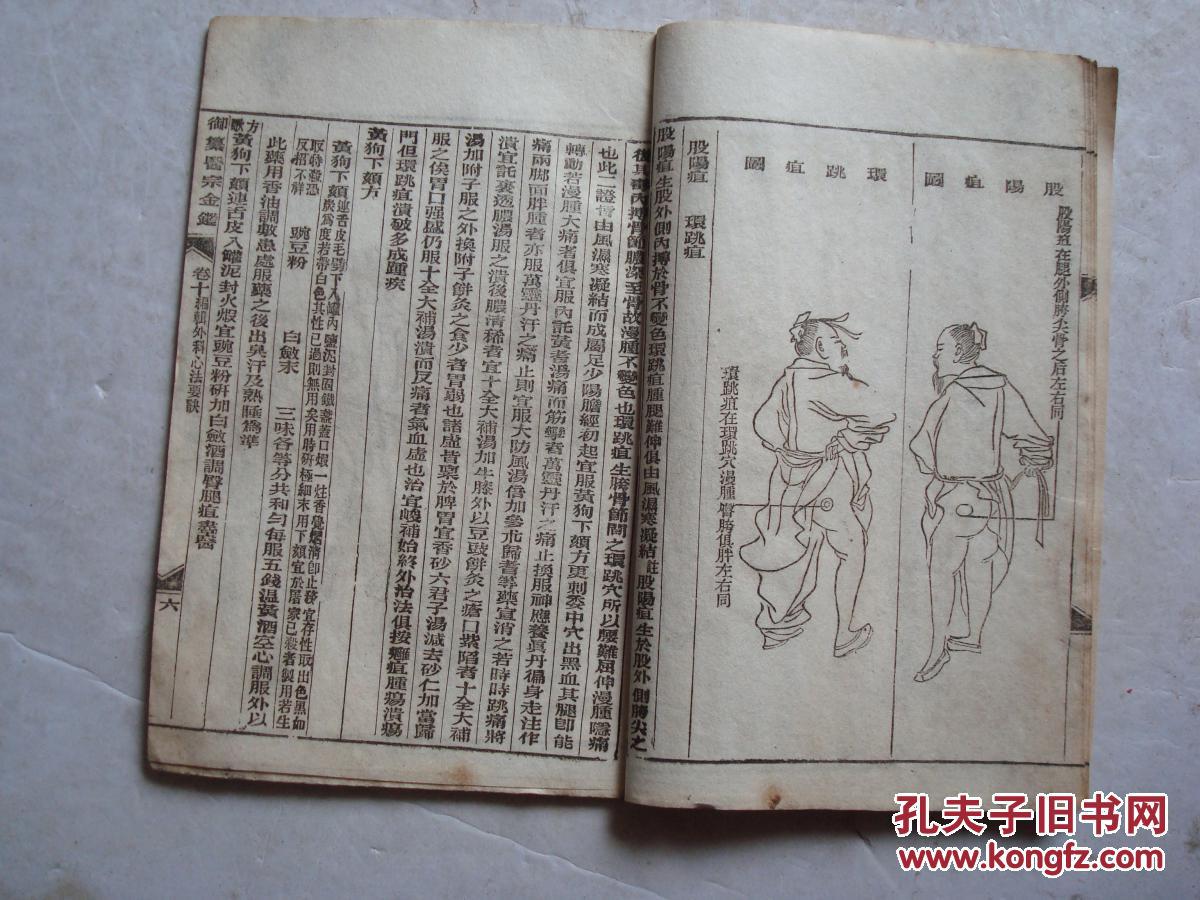 股陽疽圖
股陽疽在腿外側胯尖骨之后左右同
環跳疽圖
環跳疽在環跳穴漫腫臀胯俱胖左右同
股陽疽 環跳疽
股陽疽生股外側內搏於骨不變色環跳疽腫腿難伸俱由風濕寒凝結註股陽疽生於股外側胯尖之
後其毒內搏骨節膿深至骨故漫腫不變色也環跳疽生胯骨節間之環跳穴所以腰難屈伸漫腫隱痛
也此二證皆由風濕寒凝結而成屬足少陽膽經初起宜服黃狗下頦方更刺委中穴出黑血其腿即能
轉動若漫腫大痛者俱宜服內託黃耆湯痛而筋攣者萬靈丹汗之痛止換服神應養真丹徧身走注作
痛兩脚面胖腫者亦服萬靈丹汗之痛止則宜服大防風湯倍加參朮歸耆等藥宣消之若時時跳痛將
潰宜託裏透膿湯服之潰後膿清稀者宜十全大補湯加牛膝外以豆豉餅灸之瘡口紫陷者十全大補
湯加附子服之外換附子餅灸之食少者胃弱也諸虛皆稟於脾胃宜香砂六君子湯減去砂仁加當歸
服之俟胃口强盛仍服十全大補湯潰而反痛者氣血虛也治宜峻補始終外治法俱按癰疽腫瘍潰瘍
門但環跳疽潰破多成踵疾
黃狗下頦方
黃狗下頦連舌皮毛劈下入罐內鹽泥封固鐵盞蓋口煆一炷香覺烟清即止務宜存性取出色黑如
炭為度若帶白色其性已過則無用矣用時研極細末用下頦宜於屠家已殺者製用若生
取特殺恐
反招不祥 豌豆粉 白蘞末 三味各等分共和勻每服五錢温黃酒空心調服外以
此藥用香油調敷患處服藥之後出臭汗及熟睡為準
方歌黃狗下頦連舌皮入罐泥封火煆宜豌豆粉研加白蘞酒調臀腿疽毒醫
御纂醫宗金鑑 卷十 編輯外科心法要訣 六
孔夫子旧书网
www.kongfz.com